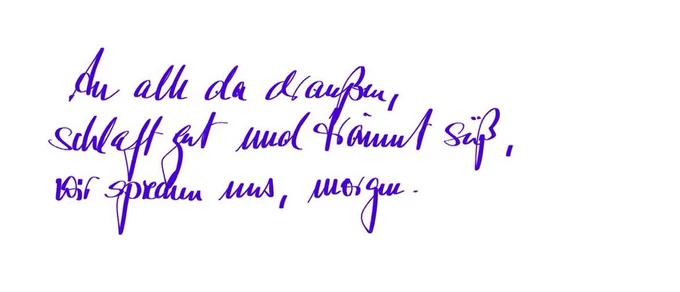 An alle da draußen,
schlaft gut und träumt süß,
wir sprechen uns, morgen.